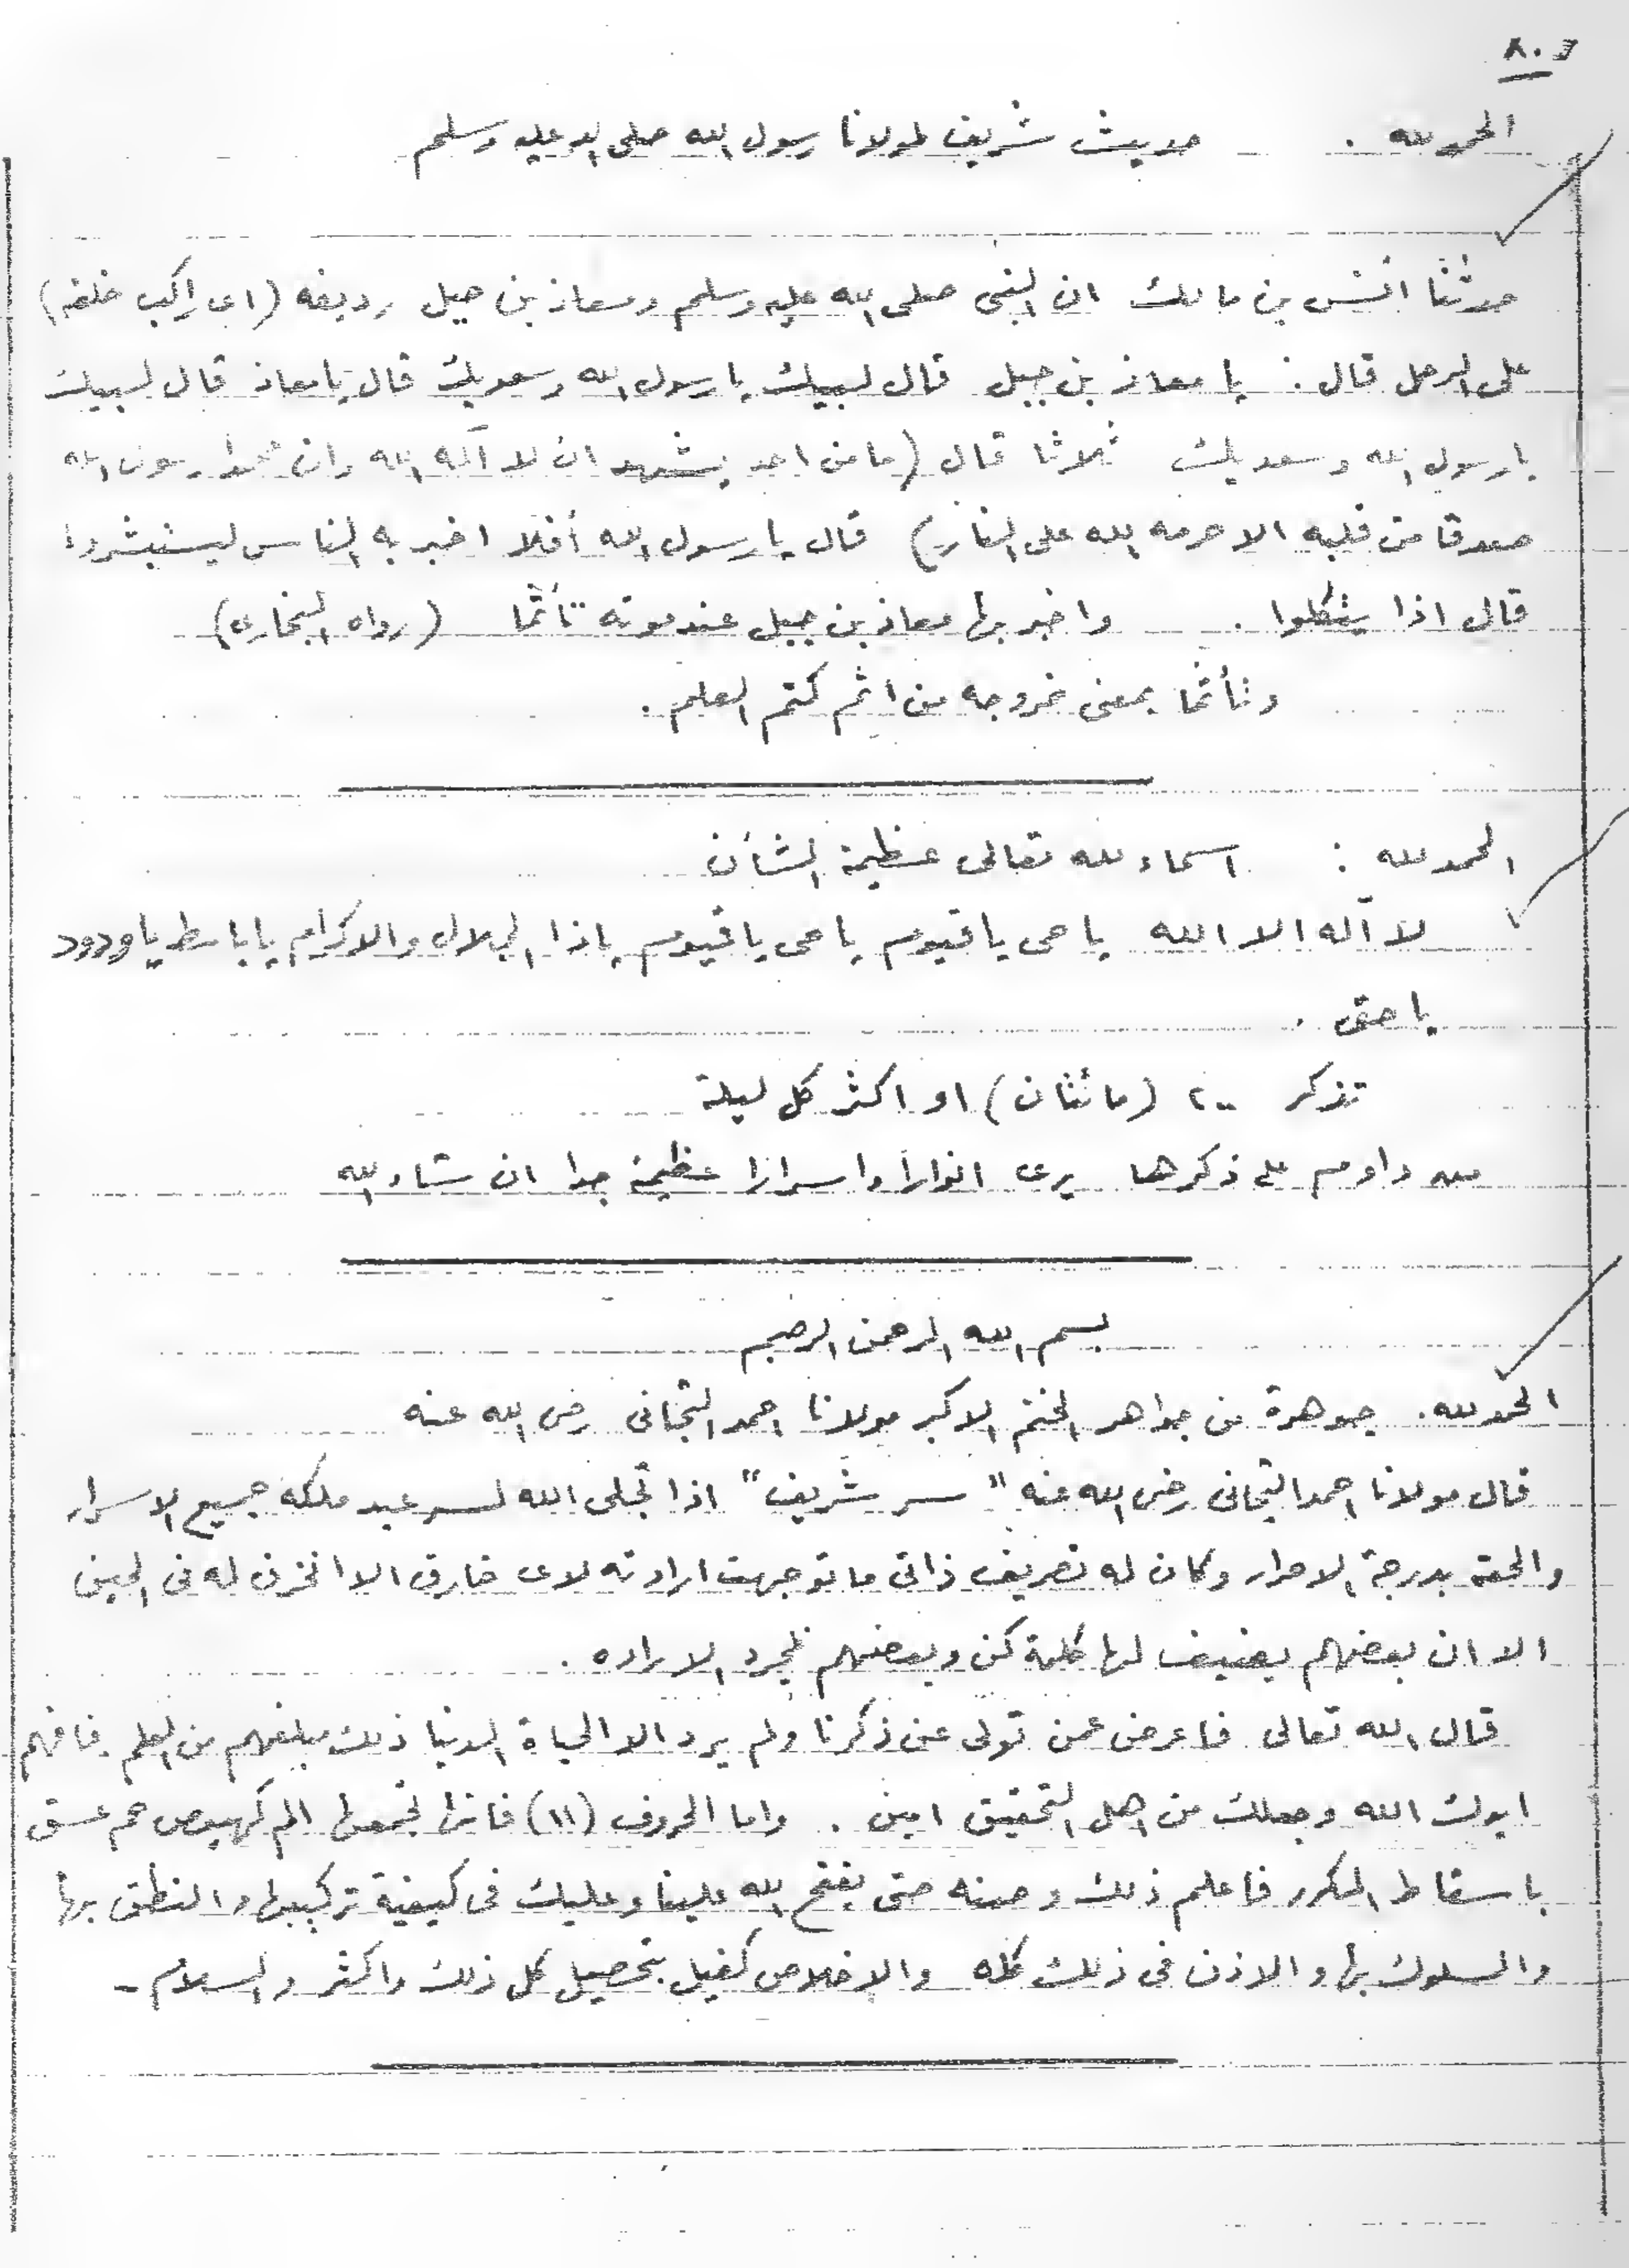 الحمد لله . حديث شريف لمولانا رسول الله صلى الله عليه وسلم
حدثنا أنس بن مالك ان النبى صلى الله عليه وسلم ومعاذ بن جبل رديفه (اى راكب خلفه)
على الرحل قال : يا معاذ بن جبل قال لبيك يا رسول الله وسعديك قال يا معاذ قال لبيك
يا رسول الله وسعديك ثلاثا قال (ما من احد يشهد ان لا آله الله وان محمدا رسول الله
صدقا من قلبه الا حرمه الله على النار) قال يا رسول الله أفلا اخبر به الناس ليستبشروا
قال اذا يتكلوا . واخبر بها معاذ بن جبل عند موته تأثما (رواه البخارى)
وتأثما بمعنى خروجه من اثم كتم العلم .
الحمد لله : اسماء لله تعالى عظيمة الشأن
لا آله الا الله يا حى يا قيوم يا حى يا قيوم ياذا الجلال والاكرام يا باسط يا ودود
يا حق .
تذكر ٢٠٠ (مائتان) او اكثر كل ليلة
من داوم على ذكرها يرى انوارا واسرارا عظيمة جدا ان شاء الله
بسم الله الرحمن الرحيم
الحمد لله . جوهرة من جواهر الختم الاكبر مولانا احمد التجانى رضى الله عنه
قال مولانا احمد التجانى رضى الله عنه " سر شريف " اذا تجلى الله لسر عبد ملكه جميع الاسرار
والحقه بدرجة الاحرار وكان له تصريف ذاتى ما توجهت ارادته لاى خارق الا انخرق له فى الحين
الا ان بعضهم يضيف لها كلمة كن وبعضهم بمجرد الاراده .
قال الله تعالى فاعرض عمن تولى عن ذكرنا ولم يرد الا الحياة الدنيا ذلك مبلغهم من العلم . فافهم
ايدك الله وجعلك من اهل التحقيق امين . واما الحروف (١١) فانها تجمعها الم كهيعص حم عسق
باسقاط المكرر فاعلم ذلك وصنه حتى يفتح الله علينا وعليك فى كيفية تركيبها والنطق بها
والسلوك بها والاذن فى ذلك كله والاخلاص كفيل بتحصيل كل ذلك واكثر والسلام -